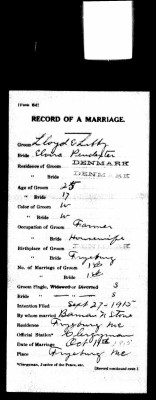 (Form Bd)
RECORD OF A MARRIAGE.
Groom Lloyd O Libby
Bride Elvira Pendexter
Residence of Groom DENMARK
" Bride DENMARK
Age of Groom 25
" Bride 17
Color of Groom W
" Bride W
Occupation of Groom Farmer
" Bride Housewife
Birthplace of Groom DENMARK
" Bride Fryeburg
No. of Marriage of Groom 1st
" Bride 1st
Groom Single, Widowed or Divorced S
Bride — — — S
Intention Filed Sept 27-1915
By whom married N Stone
Residence Fryeburg Me
Official Station* Clergyman
Date of Marriage Oct 1915
Place Fryeburg Me
*Clergyman, Justice of the Peace, etc.